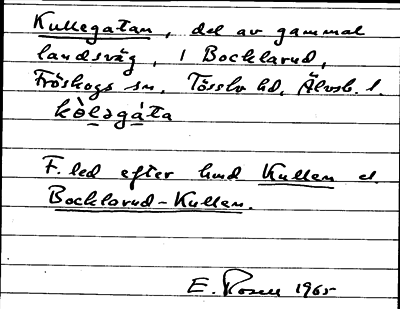 Kullegatan, del av gammal
landsväg, i Bocklarud,
Fröskogs sn, Tössbo hd, Älvsb. l.
kòləgáta
F. led efter hmd Kullen el.
Bocklarud-Kullen.
E. Rosen 1965